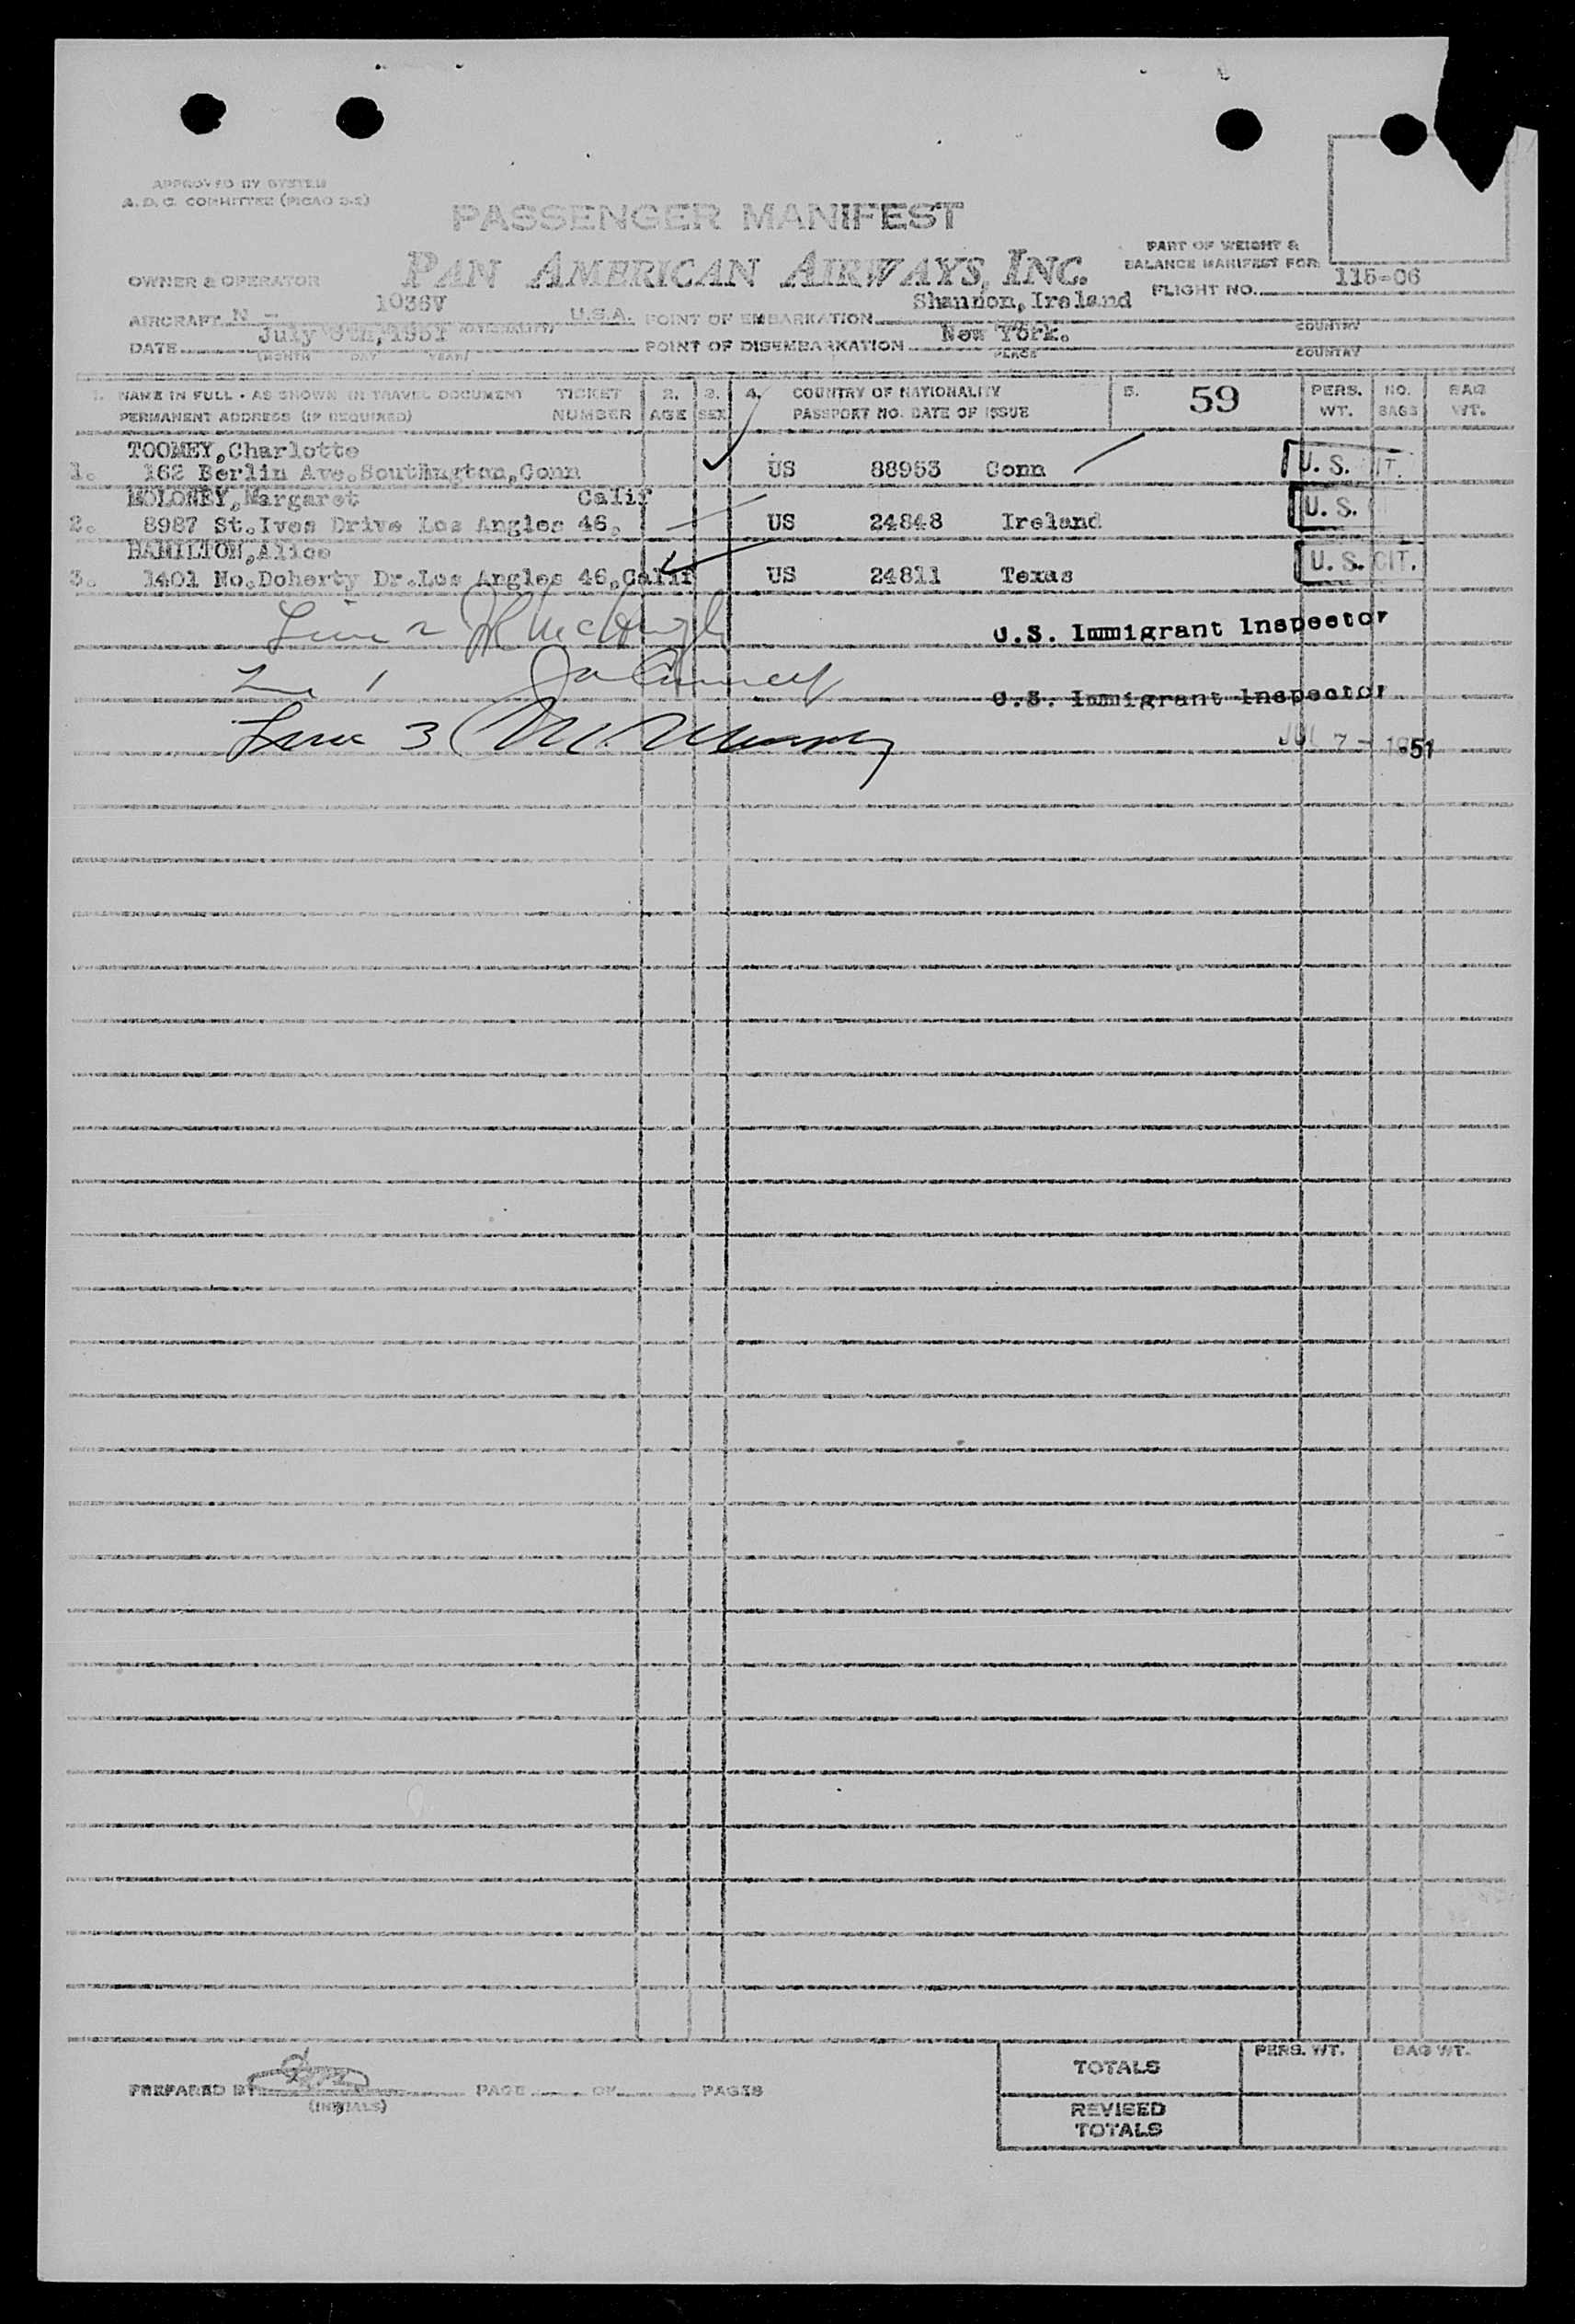 APPROVED BY SYSTEM
A. D. C. COMMITTEE (PICAO 2-2)
PASSENGER MANIFEST
OWNER & OPERATOR PAN AMERICAN AIRWAYS, INC.
PART OF WEIGHT &
BALANCE MANIFEST FOR
FLIGHT NO. 115-06
AIRCRAFT N - 1036V U.S.A. POINT OF EMBARKATION Shannon, Ireland
COUNTRY
DATE July 1951 POINT OF DISEMBARKATION New York.
(MONTH DAY YEAR) PLACE COUNTRY
1. NAME IN FULL - AS SHOWN IN TRAVEL DOCUMENT TICKET 2. 3. 4. COUNTRY OF NATIONALITY 5. 59 PERS. NO. BAG
PERMANENT ADDRESS (IF REQUIRED) NUMBER AGE SEX PASSPORT NO. DATE OF ISSUE WT. BAGS WT.
TOOMEY, Charlotte
1. 162 Berlin Ave. Southington, Conn US 88953 Conn U. S. CIT.
MOLONEY, Margaret Calif
2. 8987 St. Ives Drive Los Angles 46, US 24848 Ireland U. S.
HAMILTON, Alice
3. 1401 No. Doherty Dr. Los Angles 46, Calif US 24811 Texas U. S. CIT.
Line 2
U.S. Immigrant Inspector
Line 1
U.S. Immigrant Inspector
Line 3
JUL 7 - 1951
TOTALS PERS. WT. BAG WT.
PREPARED BY PAGE OF PAGES
(INITIALS)
REVISED
TOTALS